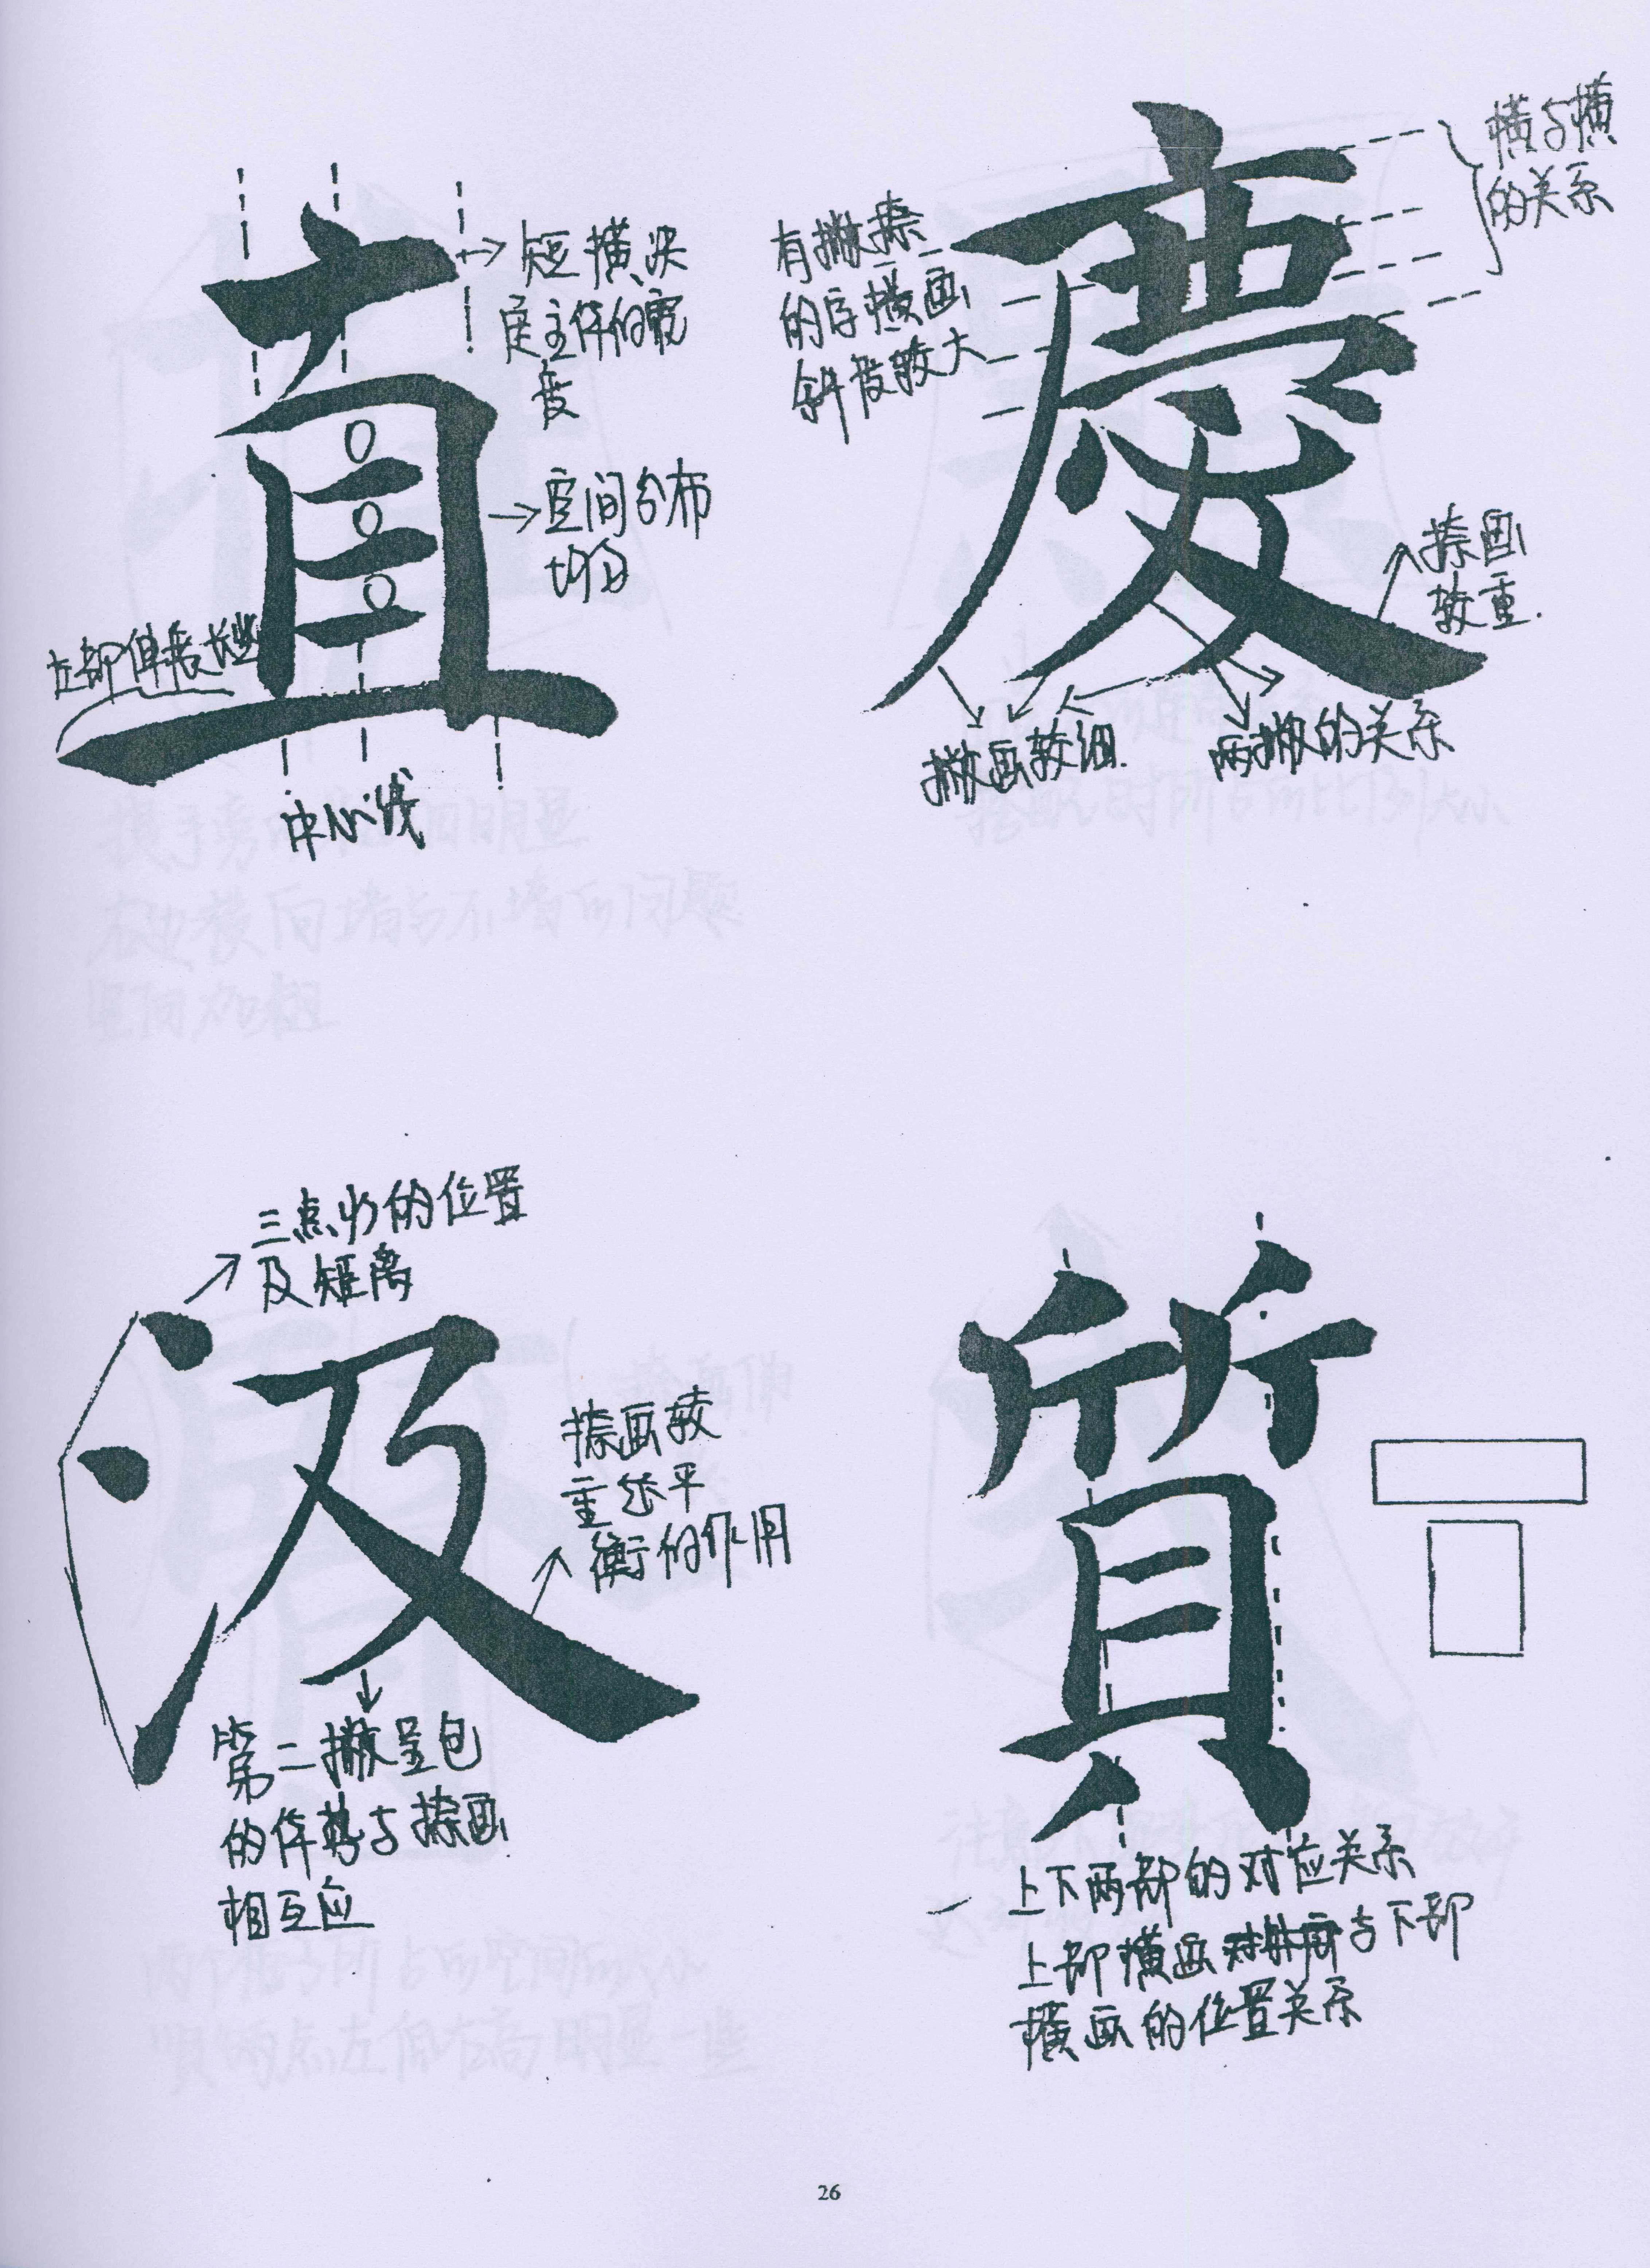 直
短横决
定主体的宽
度
空间分布
均匀
左部伸展长些
中心线
慶
横与横
的关系
有撇捺
的字横画
斜度较大
捺画
较重.
撇画较细.
两撇的关系
汲
三点水的位置
及矩离
捺画较
重起平
衡的作用
第二撇呈包
的体势与捺画
相互应
質
上下两部的对应关系
上部横画与下部
横画的位置关系
26